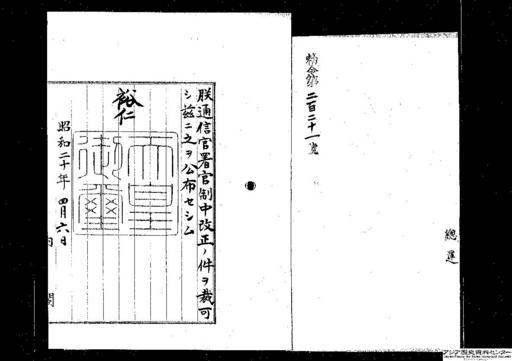 勅令第二百二十一号
総運
朕通信官署官制中改正ノ件ヲ裁可
シ茲ニ之ヲ公布セシム
裕仁
天皇御璽
昭和二十年四月六日
内閣
アジア歴史資料センター
Japan Center for Asian Historical Records